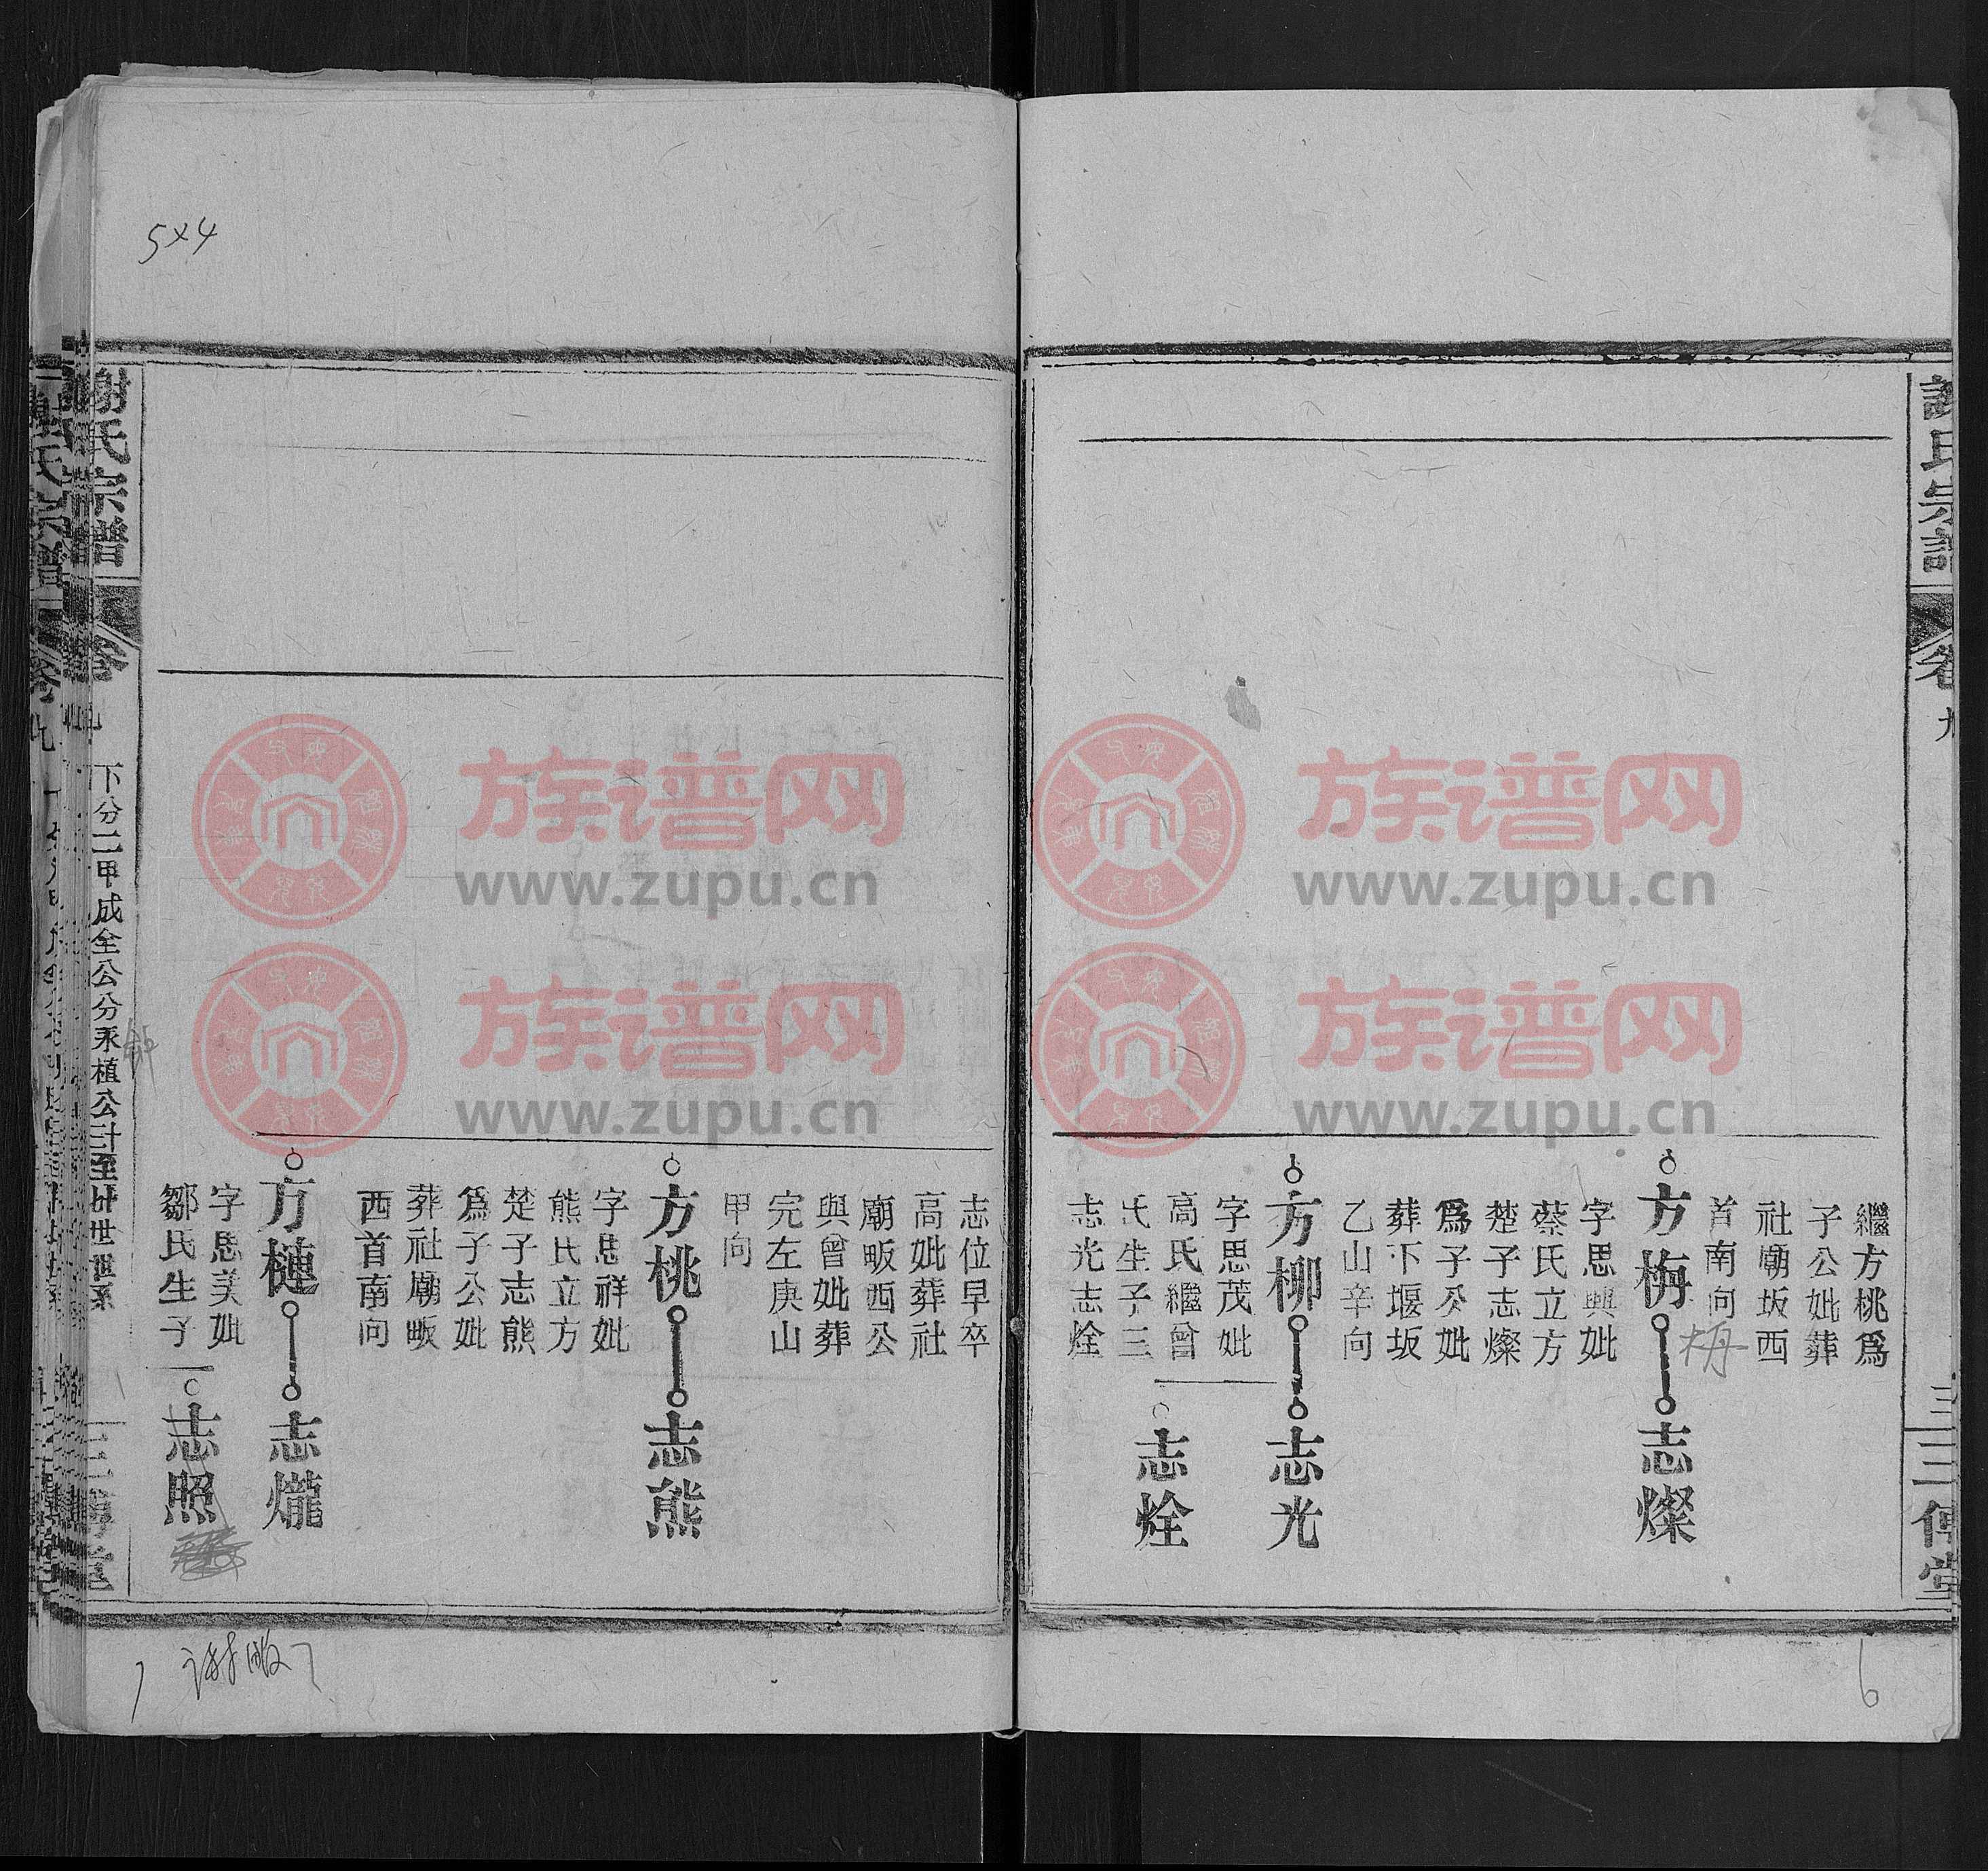 謝氏宗譜
卷九
三
三傳堂
繼方桃爲
子公妣葬
社廟坂西
首南向
方梅
志燦
梅
字思興妣
蔡氏立方
楚子志燦
爲子公妣
葬下堰坂
乙山辛向
方柳
志光
字思茂妣
高氏繼曾
氏生子三
志光志烇
志烇
6
志位早卒
高妣葬社
廟畈西公
與曾妣葬
完左庚山
甲向
方桃
志熊
字思祥妣
熊氏立方
楚子志熊
爲子公妣
葬社廟畈
西首南向
方槤
志爖
字思美妣
鄒氏生子
志照
謝氏宗譜
卷九
下分二甲成全公分汞植公二十至卅世世系
三傳堂
5x4
族谱网
www.zupu.cn
族谱网
www.zupu.cn
族谱网
www.zupu.cn
族谱网
www.zupu.cn